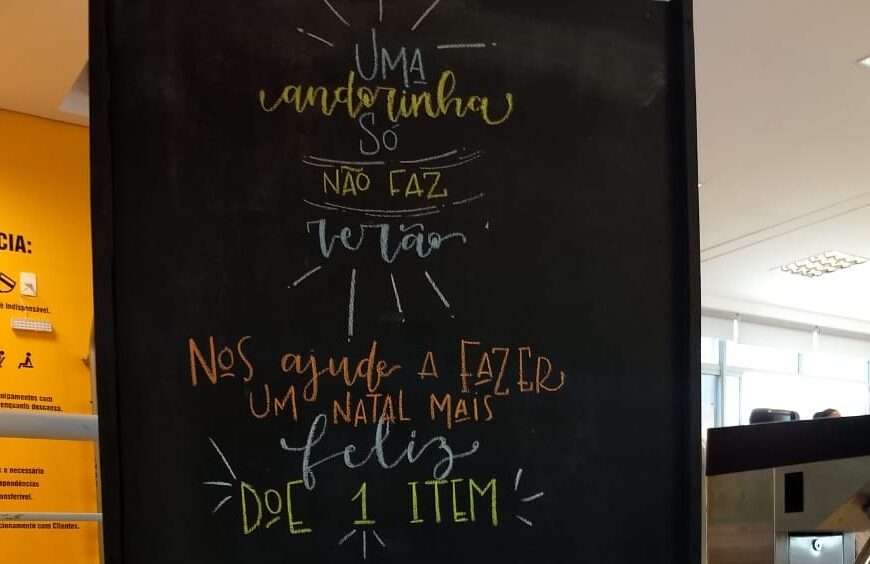 UMA
andorinha
SÓ
NÃO FAZ
verão
NOS ajude A FAZER
UM NATAL MAIS
feliz
DOE 1 ITEM
CIA:
é indispensável.
quipamentos com
enquanto descansa.
o necessário
ependências
ransferível.
cionamento com Clientes.